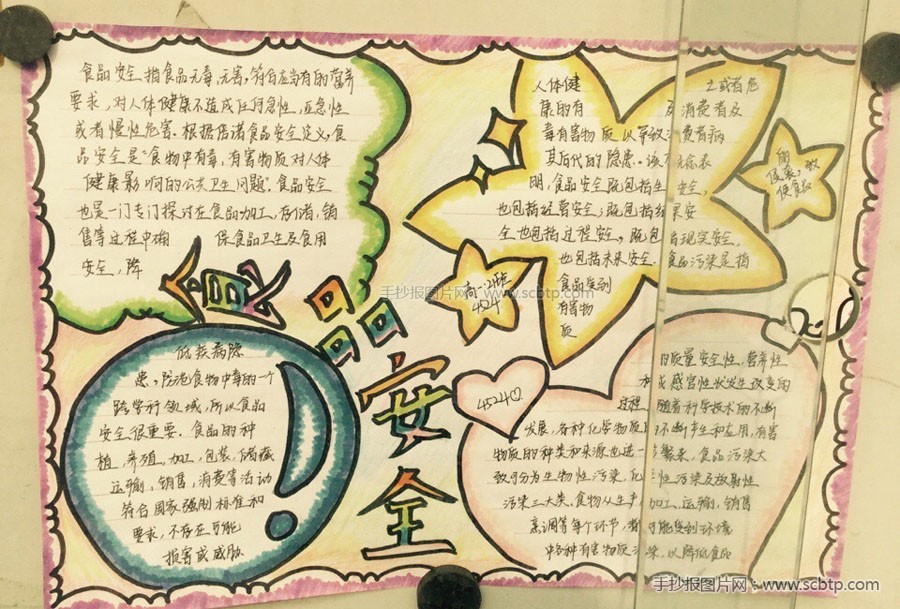 食品安全指食品无毒、无害,符合应当有的营养
要求,对人体健康不造成任何急性、亚急性
或者慢性危害。根据倍诺食品安全定义,食
品安全是"食物中有毒、有害物质对人体
健康影响的公共卫生问题"。食品安全
也是一门专门探讨在食品加工、存储、销
售等过程中确 保食品卫生及食用
安全,降
食品安全
低疾病隐
患,防范食物中毒的一个
跨学科领域,所以食品
安全很重要。食品的种
植、养殖、加工、包装、储藏
运输、销售、消费等活动
符合国家强制标准和
要求,不存在可能
损害或威胁
人体健 土或者危
康的有 及消费者及
毒有害物质以导致消费者病
其后代的隐患。该 表
明,食品安全既包括生 安全,
也包括经营安全;既包括结果安
全也包括过程安全,既包 括现实安全,
也包括未来安全。食品污染是指
食品受到
有害物
质
的
侵袭,致
使食品
高一
4524
4524
的质量安全性、营养性
和 感官性状发生改变的
过程 随着科学技术的不断
发展,各种化学物质的不断产生和应用,有害
物质的种类和来源也进一 繁杂,食品污染大
致可分为生物性污染、化 性污染及放射性
污染三大类,食物从生产 加工、运输、销售
烹调等每个环节,都可能受到环境
中各种有害物质污染,以降低食品
手抄报图片网:www.scbtp.com
手抄报图片网:www.scbtp.com